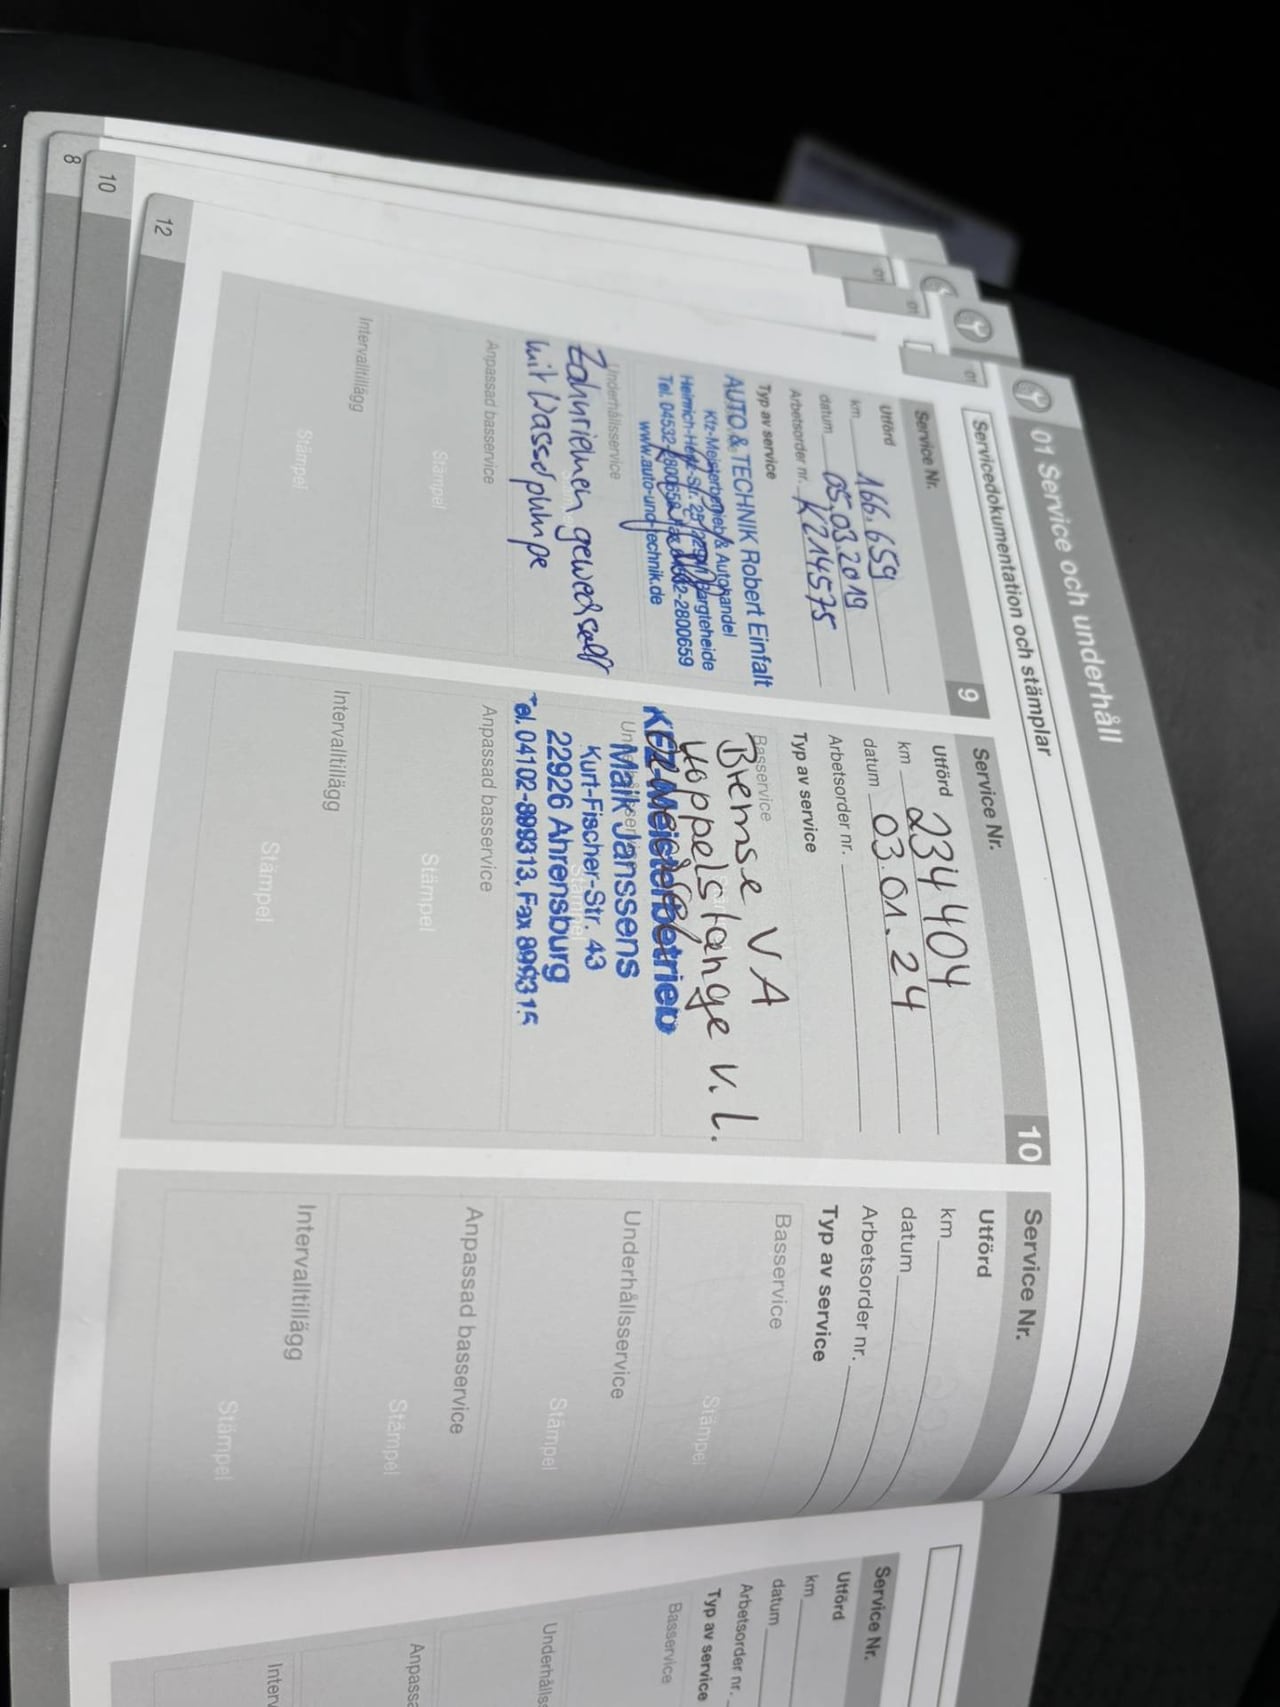 01 Service och underhåll
Servicedokumentation och stämplar
Service Nr. 9
Utförd
km 166.659
datum 05.03.2019
Arbetsorder nr. K214575
Typ av service
AUTO & TECHNIK Robert Einfalt
Kfz-Meisterbetrieb & Autohandel
Heinrich-Hertz-Str. 25 Bargteheide
Tel. 04532-2800658 Fax 04532-2800659
www.auto-und-technik.de
Underhållsservice
Zahnriemen gewechselt
mit Wasserpumpe
Anpassad basservice
Stämpel
Intervalltillägg
Stämpel
Service Nr. 10
Utförd
km 234404
datum 03.01.24
Arbetsorder nr.
Typ av service
Basservice
Bremse VA
Koppelstange v.l.
KFZ-Meisterbetrieb
Maik Janssens
Kurt-Fischer-Str. 43
22926 Ahrensburg
Tel. 04102-899313, Fax 899315
Anpassad basservice
Stämpel
Intervalltillägg
Stämpel
Service Nr.
Utförd
km
datum
Arbetsorder nr.
Typ av service
Basservice
Stämpel
Underhållsservice
Stämpel
Anpassad basservice
Stämpel
Intervalltillägg
Stämpel
12
10
8
01
01
01
Service Nr.
Utförd
km
datum
Arbetsorder nr.
Typ av service
Basservice
Underhålls
Anpassa
Interv